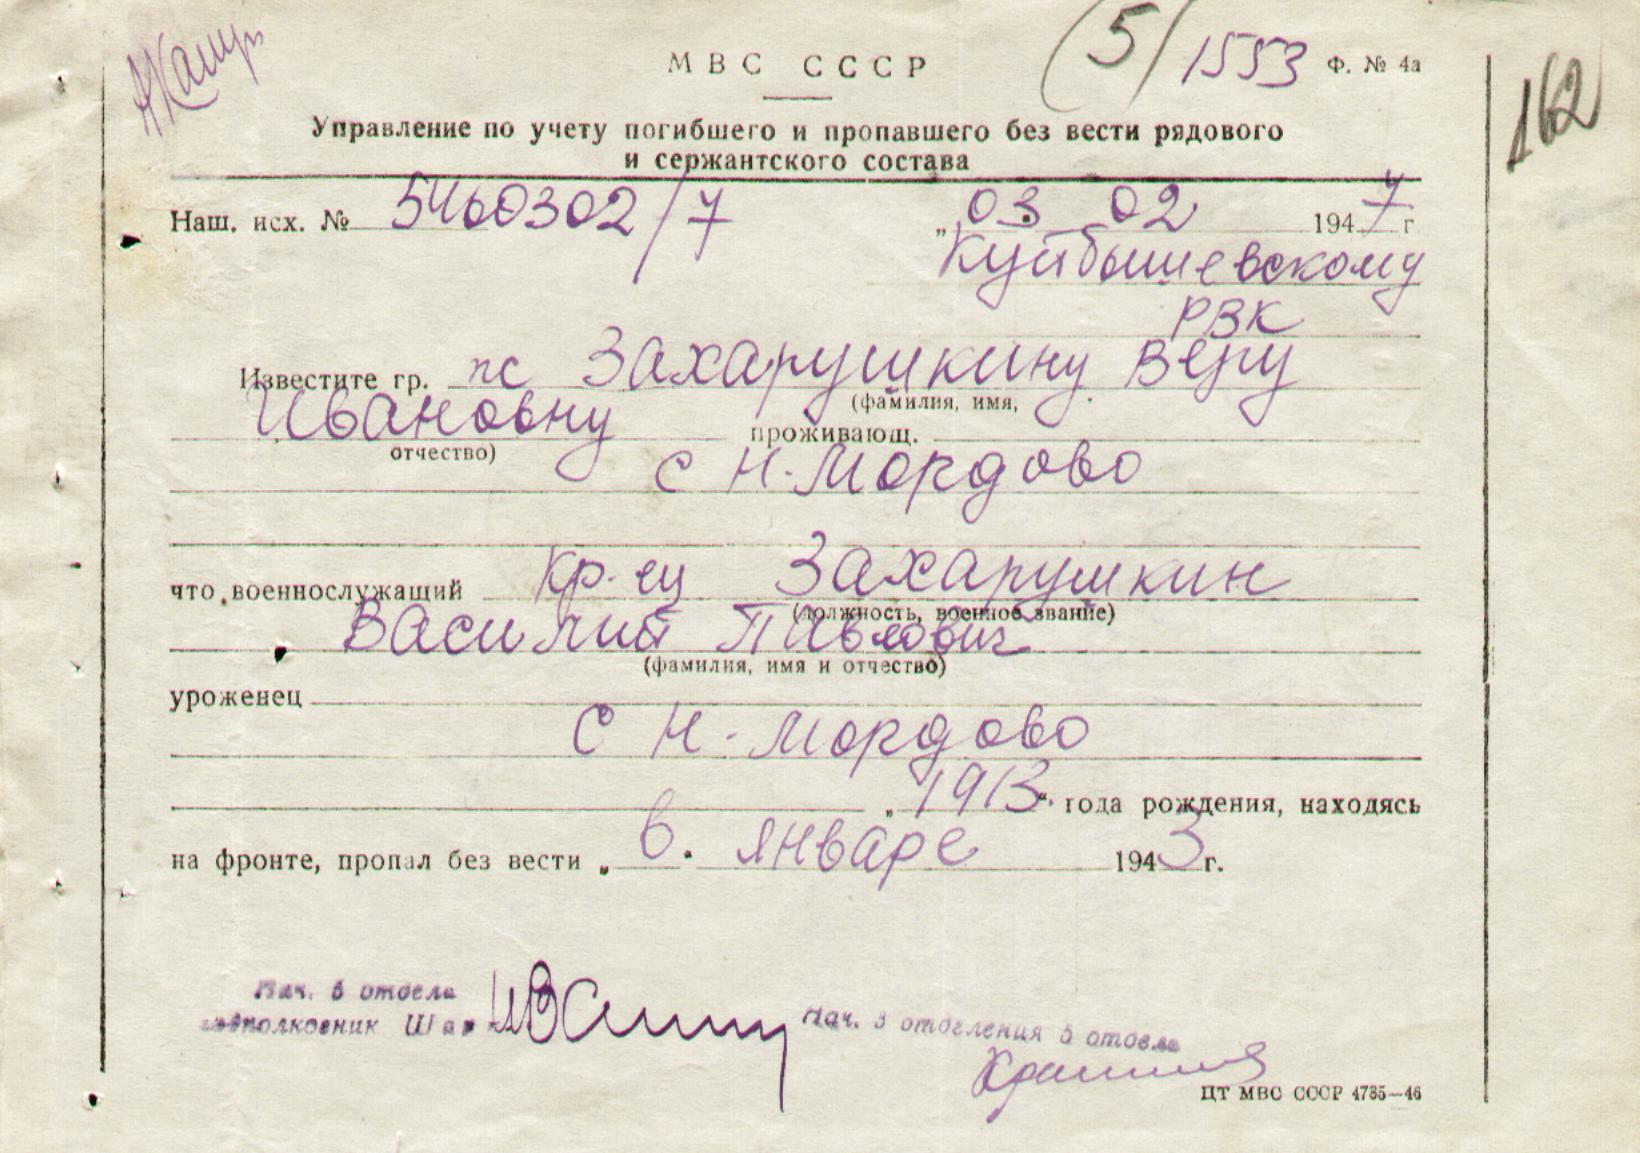 5/1553
МВС СССР
Ф. № 4а
162
Управление по учету погибшего и пропавшего без вести рядового
и сержантского состава
Наш. исх. № 5460302/7 „03 02 1947 г
Куйбышевскому
РВК
Известите гр. пс Захарушкину Веру
(фамилия, имя,
Ивановну проживающ.
отчество)
с Н-Мордово
что военнослужащий кр-ец Захарушкин
(должность, военное звание)
Василий Павлович
(фамилия, имя и отчество)
уроженец
с Н-Мордово
„1913“ года рождения, находясь
на фронте, пропал без вести „ в. январе 1943 г.
Нач. 5 отдела
подполковник
Нач. 3 отделения 5 отдела
ЦТ МВС СССР 4735—46